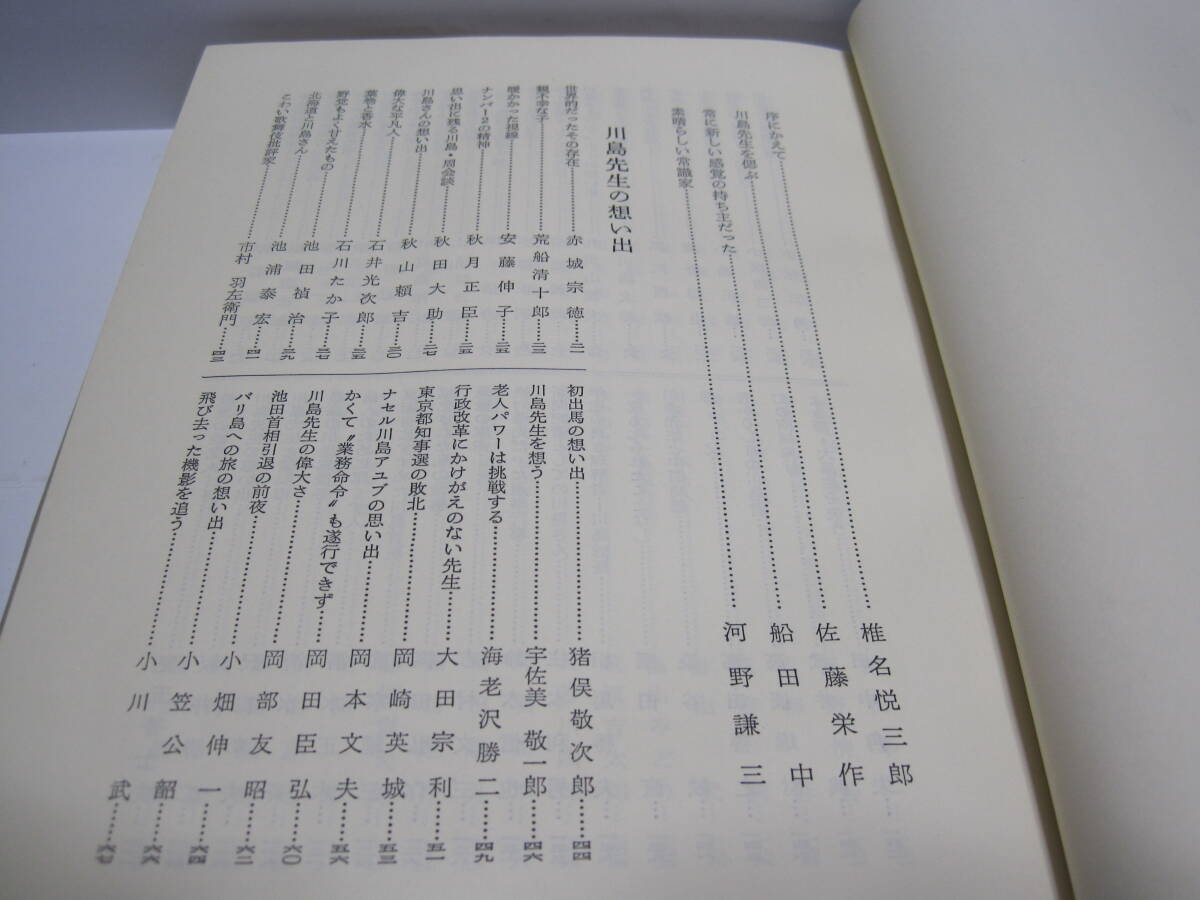 序にかえて……椎名悦三郎
川島先生を偲ぶ……佐藤栄作
常に新しい感覚の持ち主だった……船田中
素晴らしい常識家……河野謙三
川島先生の想い出
世界的だったその存在……赤城宗徳……二一
親不幸な子……荒船清十郎……二三
暖かかった視線……安藤伸子……二五
ナンバー2の精神……秋月正臣……二五
思い出に残る川島・周会談……秋田大助……二七
川島さんの想い出……秋山頼吉……三〇
偉大な平凡人……石井光次郎……三五
葉巻と香水……石川たか子……三七
野党もよく甘えたもの……池田禎治……三九
北海道と川島さん……池浦泰宏……四一
こわい歌舞伎批評家……市村羽左衛門……四三
初出馬の想い出……猪俣敬次郎……四四
川島先生を想う……宇佐美敬一郎……四六
老人パワーは挑戦する……海老沢勝二……四九
行政改革にかけがえのない先生……大田宗利……五一
東京都知事選の敗北……岡崎英城……五三
ナセル川島アユブの思い出……岡本文夫……五六
かくて〝業務命令〟も遂行できず……岡田臣弘……六〇
川島先生の偉大さ……岡部友昭……六二
池田首相引退の前夜……小畑伸一……六四
バリ島への旅の想い出……小笠公韶……六六
飛び去った機影を追う……小川武……六七